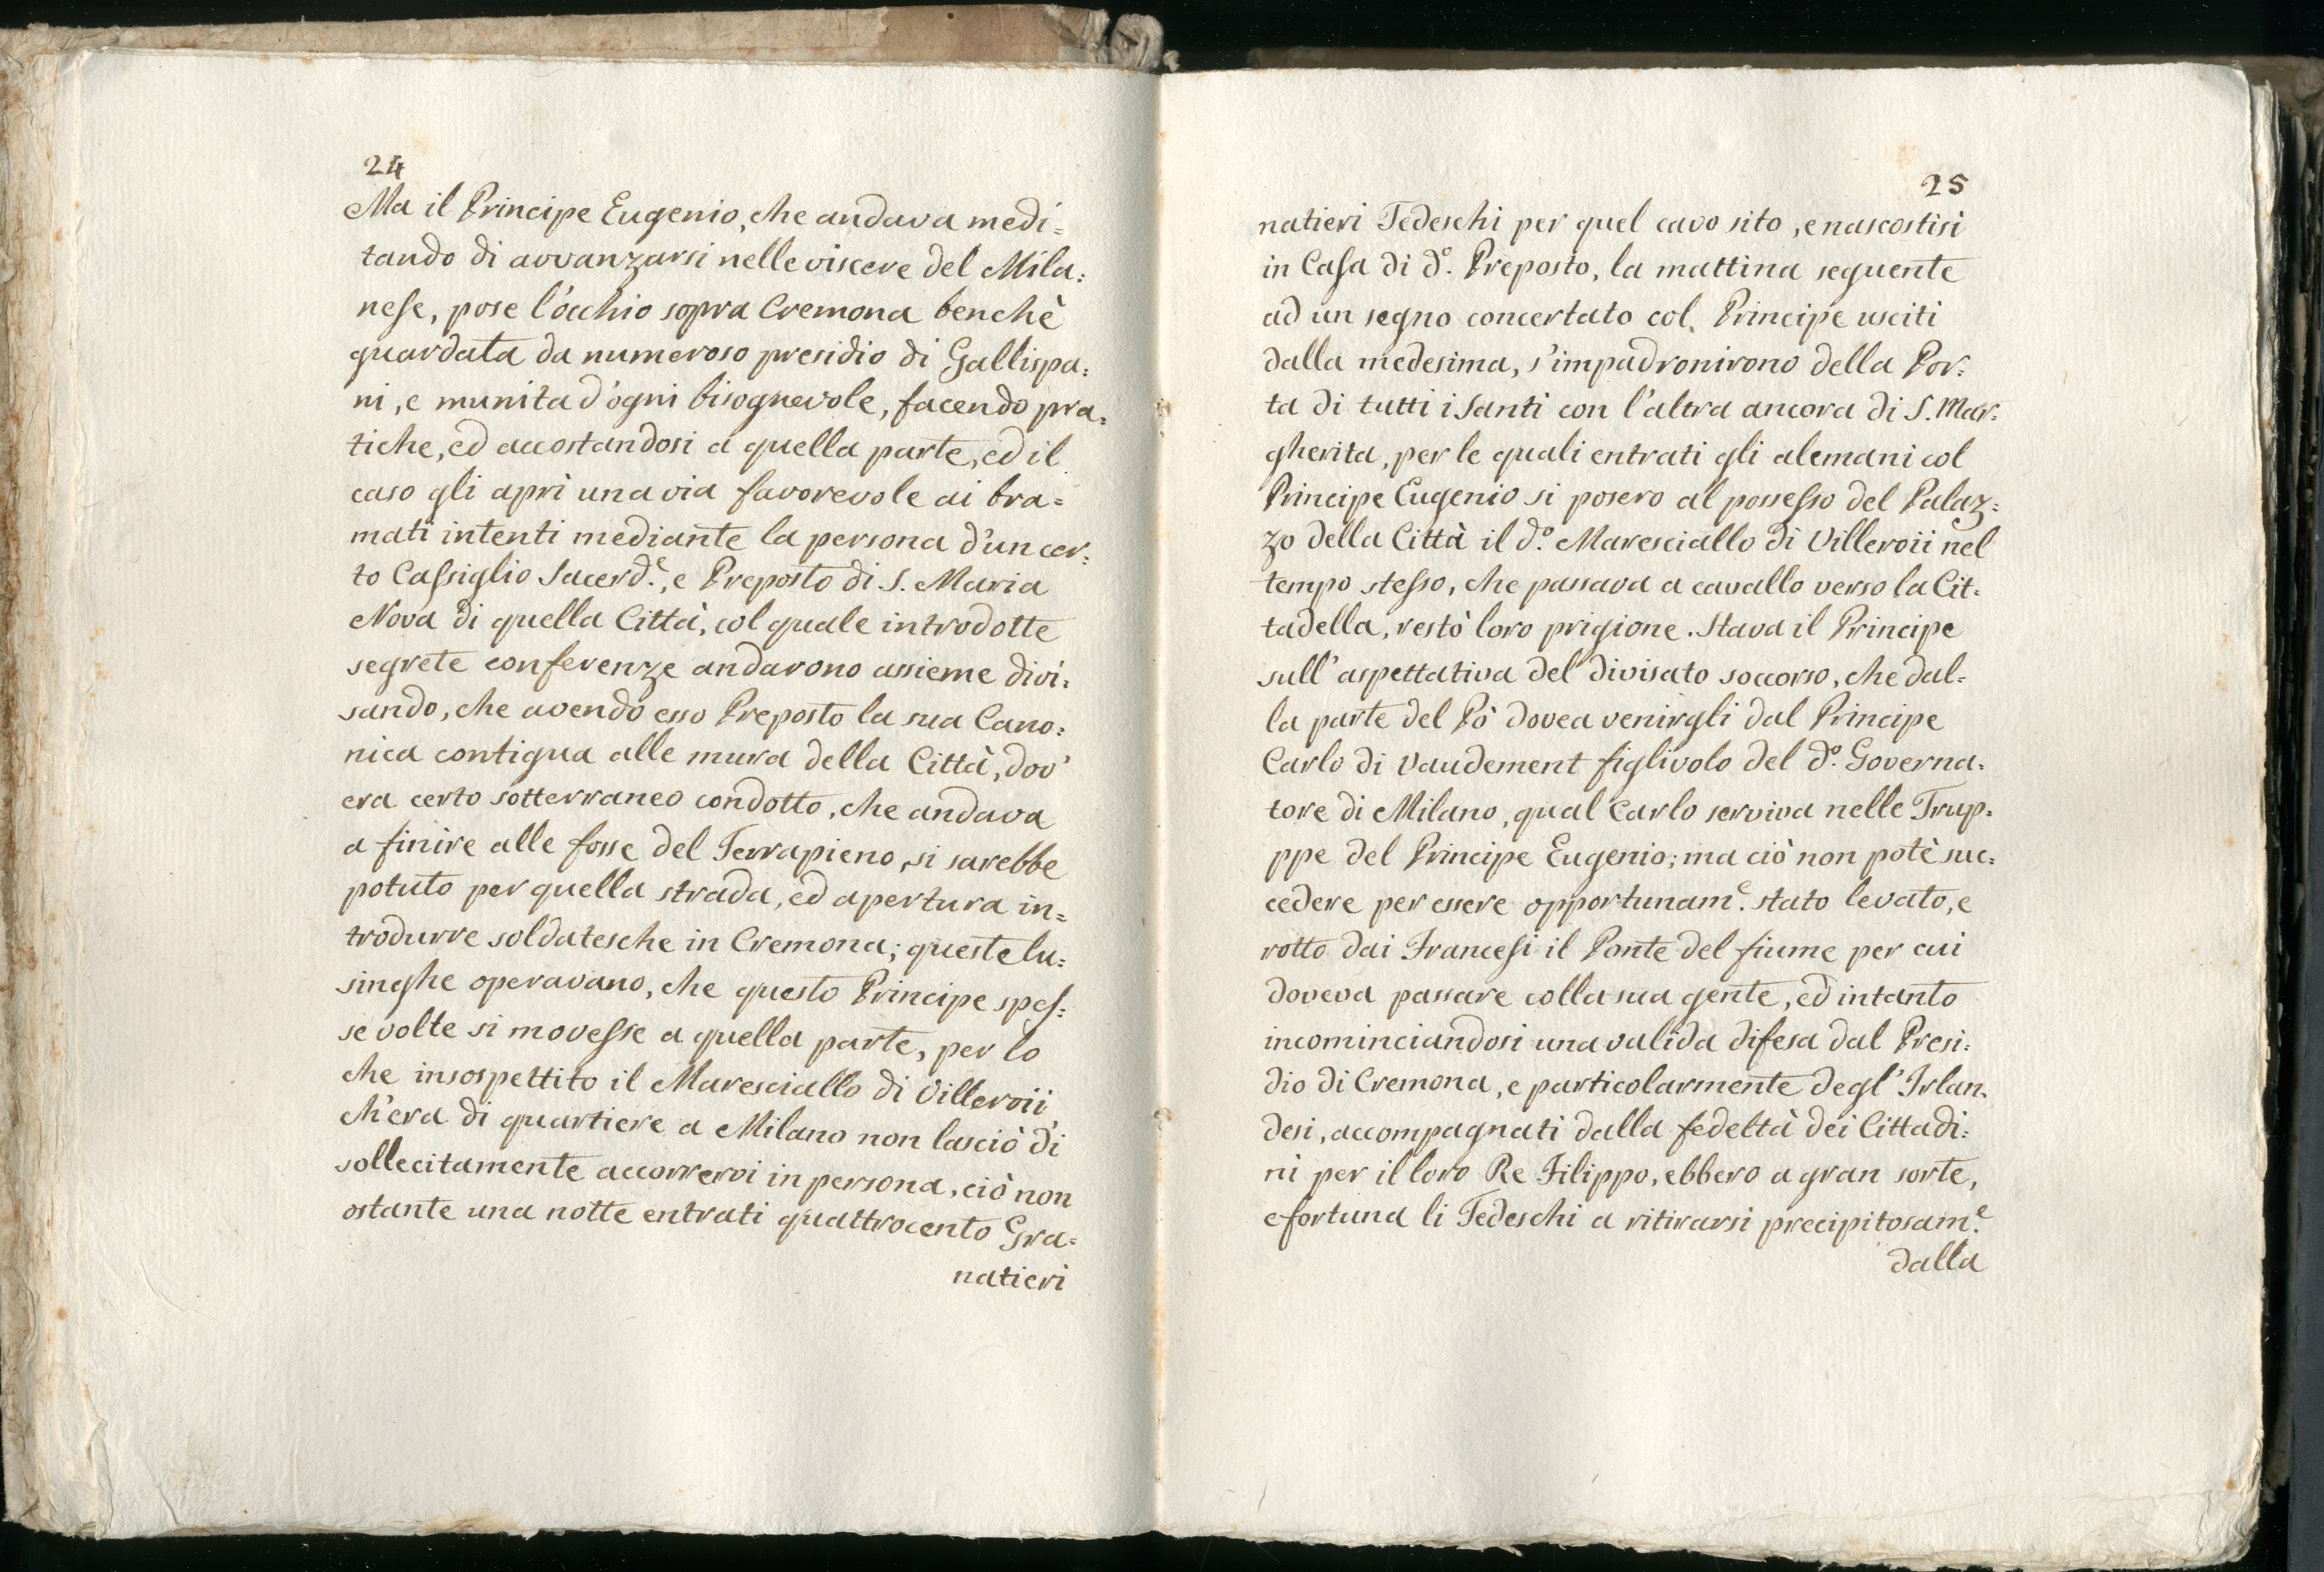 24
Ma il Principe Eugenio, che andava medi=
tando di avvanzarsi nelle viscere del Mila=
nese, pose l'occhio sopra Cremona benchè
guardata da numeroso presidio di Gallispa=
ni, e munita d'ogni bisognevole, facendo pra=
tiche, ed accostandosi a quella parte, ed il
caso gli aprì una via favorevole ai bra=
mati intenti mediante la persona d'un cer=
to Cassiglio Sacerd.e, e Preposto di S. Maria
Nova di quella Città, col quale introdotte
segrete conferenze andarono assieme divi=
sando, che avendo esso Preposto la sua Cano=
nica contigua alle mura della Città, dov'
era certo sotterraneo condotto, che andava
a finire alle fosse del Terrapieno, si sarebbe
potuto per quella strada, ed apertura in=
trodurre soldatesche in Cremona; queste lu=
singhe operavano, che questo Principe spes=
se volte si movesse a quella parte, per lo
che insospettito il Maresciallo di Villeroii,
ch'era di quartiere a Milano non lasciò di
sollecitamente accorrervi in persona, ciò non
ostante una notte entrati quattrocento Gra=
natieri
25
natieri Tedeschi per quel cavo sito, e nascostisi
in Casa di d.o Preposto, la mattina seguente
ad un segno concertato col Principe usciti
dalla medesima, s'impadronirono della Por=
ta di tutti i Santi con l'altra ancora di S. Mar=
gherita, per le quali entrati gli alemani col
Principe Eugenio si posero al possesso del Palaz=
zo della Città il d.o Maresciallo di Villeroii nel
tempo stesso, che passava a cavallo verso la Cit=
tadella, restò loro prigione. Stava il Principe
sull'aspettativa del divisato soccorso, che dal=
la parte del Pò dovea venirgli dal Principe
Carlo di Vaudement figlivolo del d.o Governa=
tore di Milano, qual Carlo serviva nelle Trup=
ppe del Principe Eugenio; ma ciò non potè suc=
cedere per essere opportunam.e stato levato, e
rotto dai Francesi il Ponte del fiume per cui
doveva passare colla sua gente, ed intanto
incominciandosi una valida difesa dal Presi=
dio di Cremona, e particolarmente degl'Irlan=
desi, accompagnati dalla fedeltà dei Cittadi=
ni per il loro Re Filippo, ebbero a gran sorte,
e fortuna li Tedeschi a ritirarsi precipitosam.e
dalla